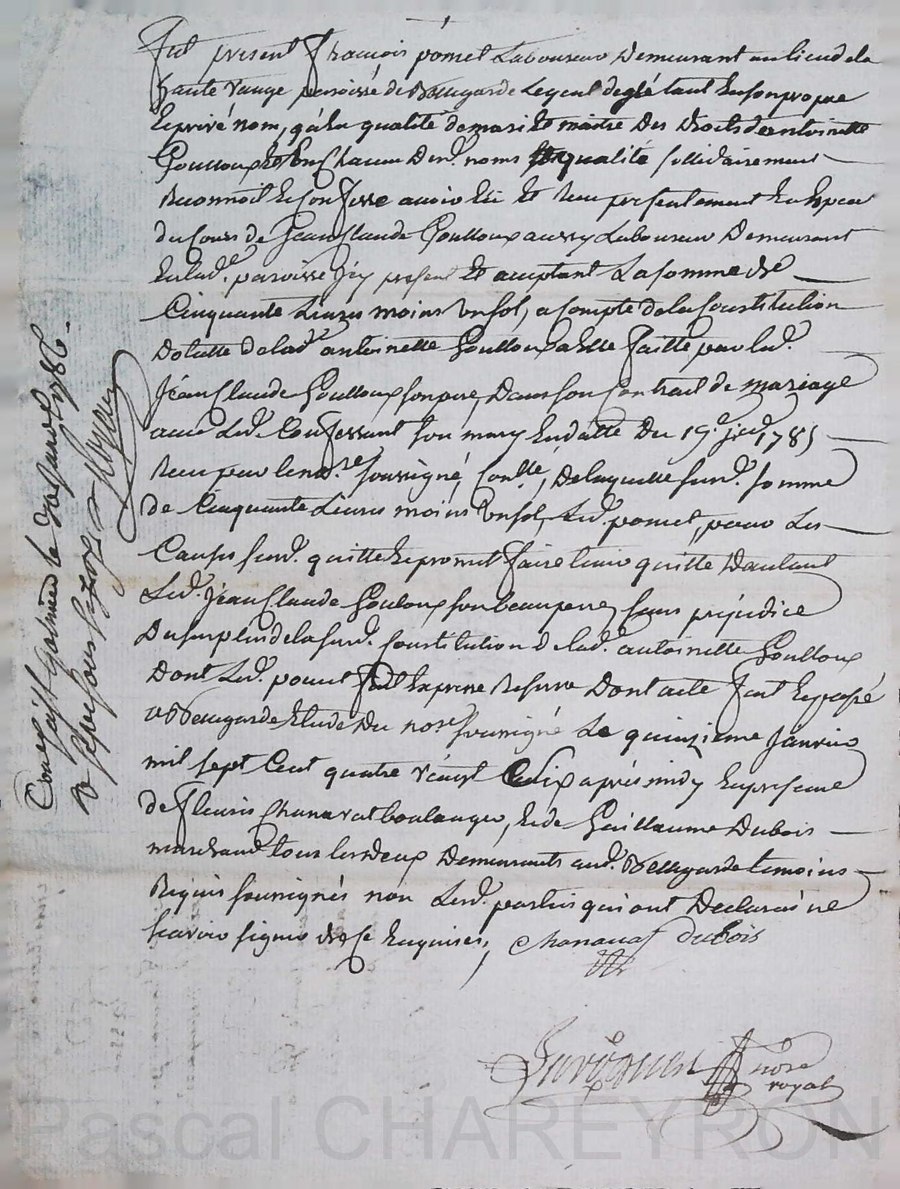 Fut present François pomet Laboureur Demeurant au lieu de la
haute range parroisse de Bellegarde Lequel de gré tant En son propre
Et privé nom, qu'En qualité de mari Et maitre Des Droits de antoinette
Goulloux Et En Chacun Desd. noms Et qualité sollidairement
Reconnoit Et Confesse avoir Eu Et Reçu presentement En Espece
du Cours de Jean Claude Goulloux aussy Laboureur Demeurant
En lad.e paroisse Icy present Et acceptant La somme de
Cinquante Livres moins Un sol, a compte de la Constitution
Dotalle de lad.e antoinette Goulloux a Elle faitte par led.
Jean Claude Goulloux son pere, Dans son Contrat de mariage
avec Led. Confessant son mary En datte Du 19.e 1785
Reçu par le no.re soussigné, Conllé, De laquelle susd. somme
de Cinquante Livres moins Un sol, Led. pomet, pour Les
Causes susd. quitte Et promet faire tenir quitte Dautant
Led. Jean Claude Gouloux son beau pere, sans prejudice
Du surplus de la susd. Constitution De lad. antoinette Goulloux
Dont Led. pomet fait Expresse Reserve Dont acte fait Et passé
a Bellegarde Etude Du no.re soussigné Le quinzieme Janvier
mil sept Cent quatre vingt six après midy En presence
de fleuris Chanavat boulanger, Et de Guillaume Dubois
marchand tous Les deux Demeurants aud. Bellegarde temoins
Requis soussignés non Lesd. parties qui ont Declarés ne
scavoir signer de ce Enquises,
Chanavat dubois
no.re
royal
Controllé a St Galmier le Janvier 1786.
Reçu sous
Pascal CHAREYRON